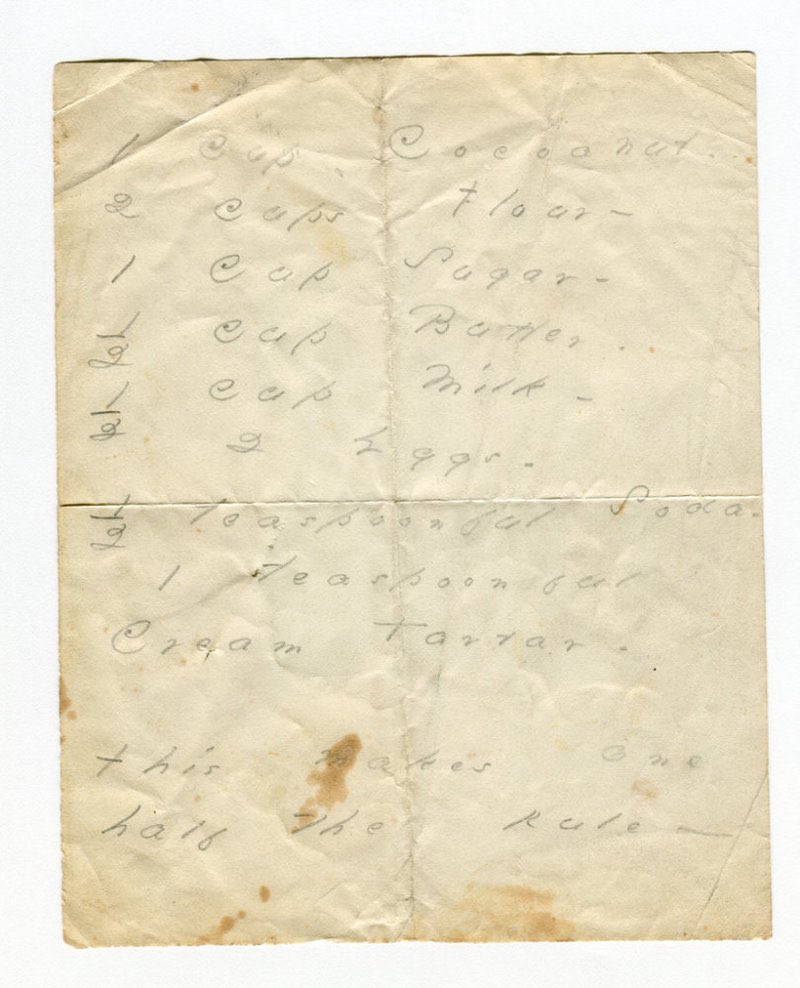 1 Cup. Cocoanut.
2 Cups Flour-
1 Cup Sugar-
1/2 Cup Butter.
1/2 Cup Milk-
2 Eggs.
1/2 Teaspoonful Soda.
1 Teaspoonful
Cream Tartar.
This makes one
half The Rule-